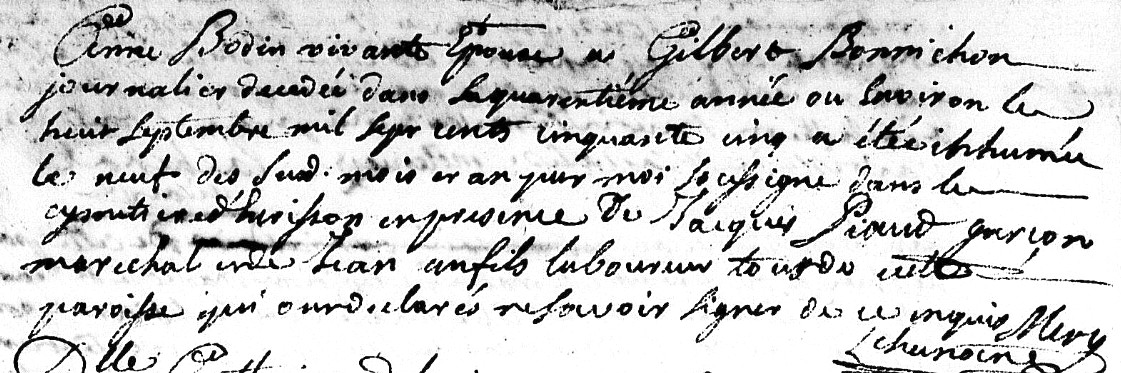 Anne Bodin vivante Epouse a Gilbert Bonnichon
journalier decedée dans sa quarentiéme année ou Environ le
huit septembre mil sept cents cinquante cinq a été inhumée
le neuf des susd. mois et an par moi soussigné dans le
cymetiere d'hérisson en presence De Jacques Piaud garçon
marechal et de Jean anfils laboureur tous de cette
paroisse qui ont declarés ne savoir signer de ce enquis Mery
chanoine